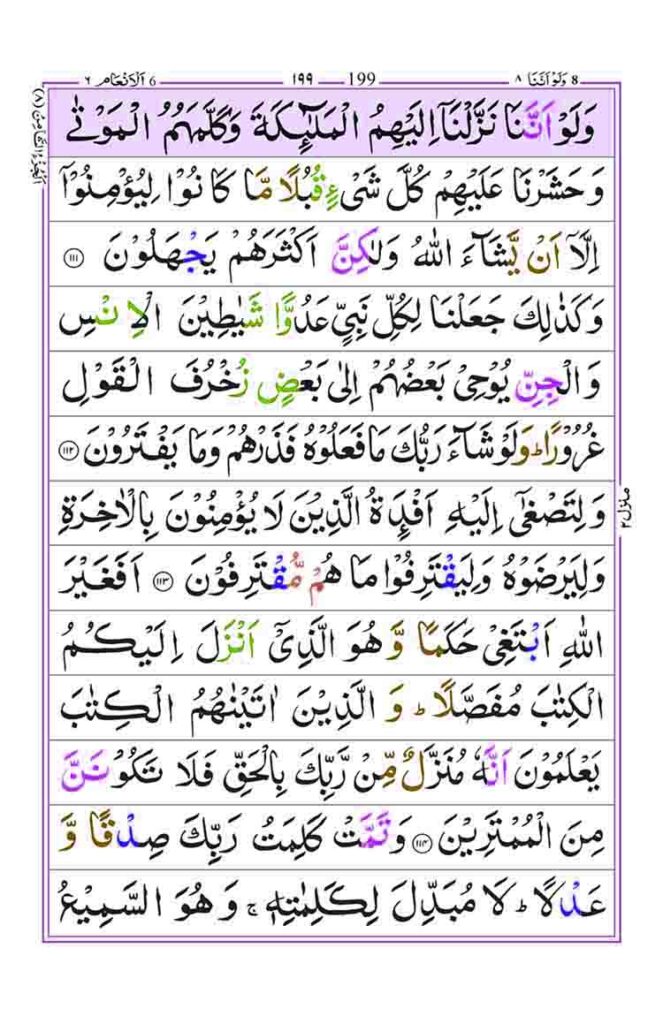 8 وَلَوْ اَنَّنَا ٨ 199 ١٩٩ 6 اَلْاَنْعَام ٦
وَلَوْ اَنَّنَا نَزَّلْنَاۤ اِلَيْهِمُ الْمَلٰٓئِكَةَ وَكَلَّمَهُمُ الْمَوْتٰى
وَحَشَرْنَا عَلَيْهِمْ كُلَّ شَىْءٍ قُبُلًا مَّا كَانُوْا لِيُؤْمِنُوْۤا
اِلَّاۤ اَنْ يَّشَآءَ اللّٰهُ وَلٰكِنَّ اَكْثَرَهُمْ يَجْهَلُوْنَ ١١١
وَكَذٰلِكَ جَعَلْنَا لِكُلِّ نَبِىٍّ عَدُوًّا شَيٰطِيْنَ الْاِنْسِ
وَالْجِنِّ يُوْحِىْ بَعْضُهُمْ اِلٰى بَعْضٍ زُخْرُفَ الْقَوْلِ
غُرُوْرًا ؕ وَلَوْ شَآءَ رَبُّكَ مَا فَعَلُوْهُ فَذَرْهُمْ وَمَا يَفْتَرُوْنَ ١١٢
وَلِتَصْغٰۤى اِلَيْهِ اَفْـِٕدَةُ الَّذِيْنَ لَا يُؤْمِنُوْنَ بِالْاٰخِرَةِ
وَلِيَرْضَوْهُ وَلِيَقْتَرِفُوْا مَا هُمْ مُّقْتَرِفُوْنَ ١١٣ اَفَغَيْرَ
اللّٰهِ اَبْتَغِىْ حَكَمًا وَّهُوَ الَّذِىْۤ اَنْزَلَ اِلَيْكُمُ
الْكِتٰبَ مُفَصَّلًا ؕ وَالَّذِيْنَ اٰتَيْنٰهُمُ الْكِتٰبَ
يَعْلَمُوْنَ اَنَّهٗ مُنَزَّلٌ مِّنْ رَّبِّكَ بِالْحَقِّ فَلَا تَكُوْنَنَّ
مِنَ الْمُمْتَرِيْنَ ١١٤ وَتَمَّتْ كَلِمَتُ رَبِّكَ صِدْقًا وَّ
عَدْلًا ؕ لَا مُبَدِّلَ لِكَلِمٰتِهٖ ۚ وَهُوَ السَّمِيْعُ
اَلْجُزْءُ الثَّامِنُ (٨)
منزل ٢